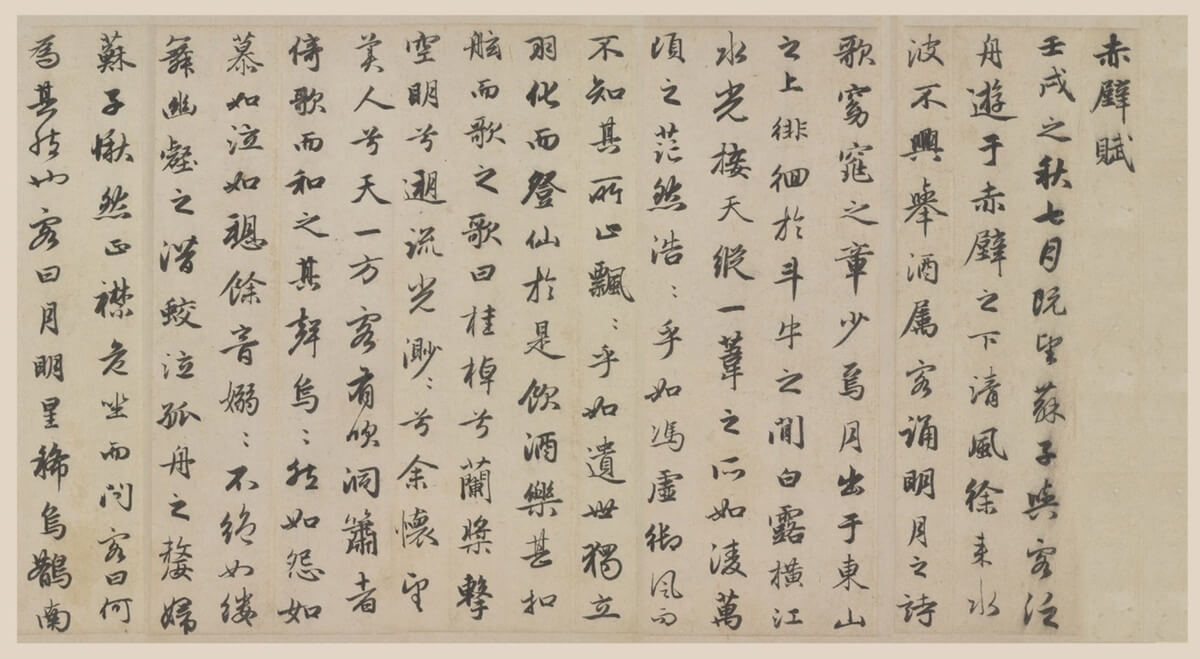 赤壁賦
壬戌之秋七月既望蘇子與客泛
舟遊于赤壁之下清風徐来水
波不興舉酒属客誦明月之詩
歌窈窕之章少焉月出于東山
之上徘徊於斗牛之間白露横江
水光接天縱一葦之所如淩萬
頃之茫然浩〻乎如馮虛御風而
不知其所止飄〻乎如遺世獨立
羽化而登仙於是飲酒樂甚扣
舷而歌之歌曰桂棹兮蘭槳擊
空明兮遡流光渺〻兮余懷望
美人兮天一方客有吹洞簫者
倚歌而和之其聲烏〻然如怨如
慕如泣如聴餘音嫋〻不絶如縷
舞幽壑之潜蛟泣孤舟之嫠婦
蘇子愀然正襟危坐而問客曰何
為其然也客曰月明星稀烏鵲南